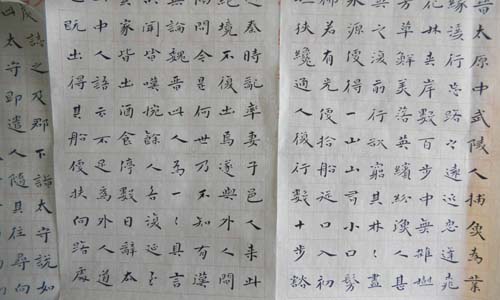 晉太原中武陵人捕魚為業
緣溪行忘路之遠近忽逢桃
花林夾岸數百步中無雜樹
芳草鮮美落英繽紛漁人甚
異之復前行欲窮其林〻盡
水源便得一山山有小口髣
髴若有光便捨船從口入初
極狹纔通人復行數十步豁
秦時亂率妻子邑人來此
絕境不復出焉遂與外人間
隔問今是何世乃不知有漢
無論魏晉此人一〻為具言
所聞皆嘆惋餘人各復延至
其家皆出酒食停數日辭去
此中人語云不足為外人道也
既出得其船便扶向路處
誌之及郡下詣太守說如
此太守即遣人隨其往尋向